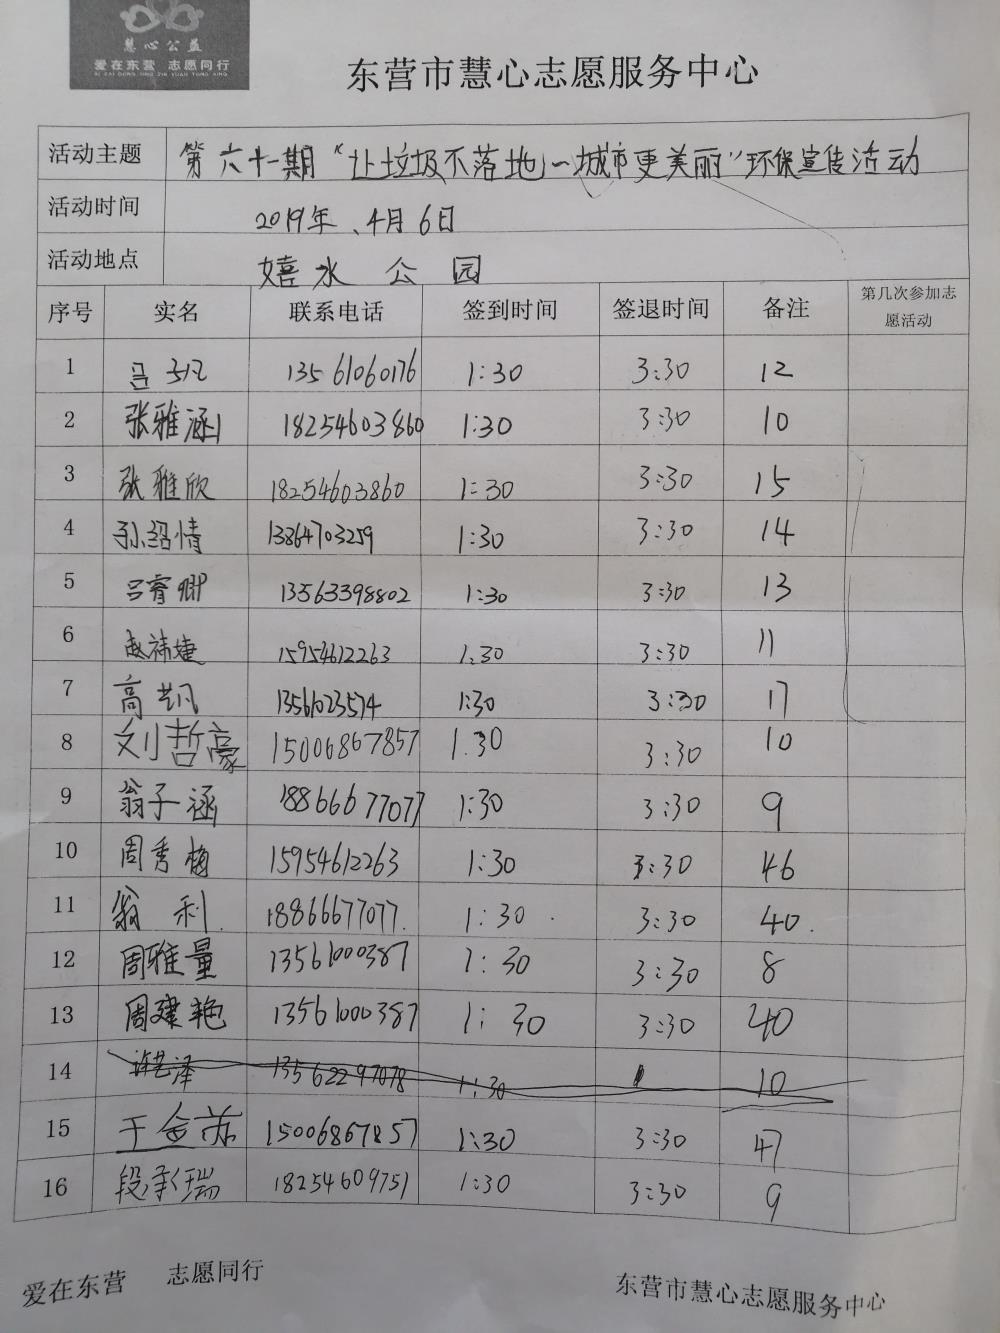 慧心公益
爱在东营 志愿同行
东营市慧心志愿服务中心
活动主题 第六十一期“让垃圾不落地一城市更美丽”环保宣传活动
活动时间 2019年、4月6日
活动地点 嬉水公园
序号 实名 联系电话 签到时间 签退时间 备注 第几次参加志愿活动
1 13561060176 1:30 3:30 12
2 张雅涵 18254603860 1:30 3:30 10
3 张雅欣 18254603860 1:30 3:30 15
4 孙绍情 13864703259 1:30 3:30 14
5 吕睿卿 13563398802 1:30 3:30 13
6 赵祎婕 15954612263 1:30 3:30 11
7 高凯 13561023574 1:30 3:30 17
8 刘哲豪 15006867857 1:30 3:30 10
9 翁子涵 18866677077 1:30 3:30 9
10 周秀梅 15954612263 1:30 3:30 46
11 翁利 18866677077 1:30 3:30 40
12 周雅量 13561000387 1:30 3:30 8
13 周建艳 13561000387 1:30 3:30 40
14 许艺泽 13562297078 1:30 10
15 于金苏 15006867857 1:30 3:30 47
16 段承瑞 18254609751 1:30 3:30 9
爱在东营 志愿同行 东营市慧心志愿服务中心